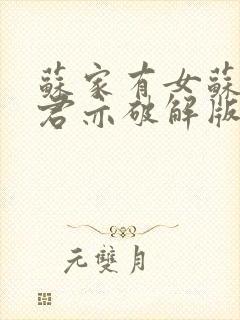 蘇家有女蘇
君亦破解版
元雙月